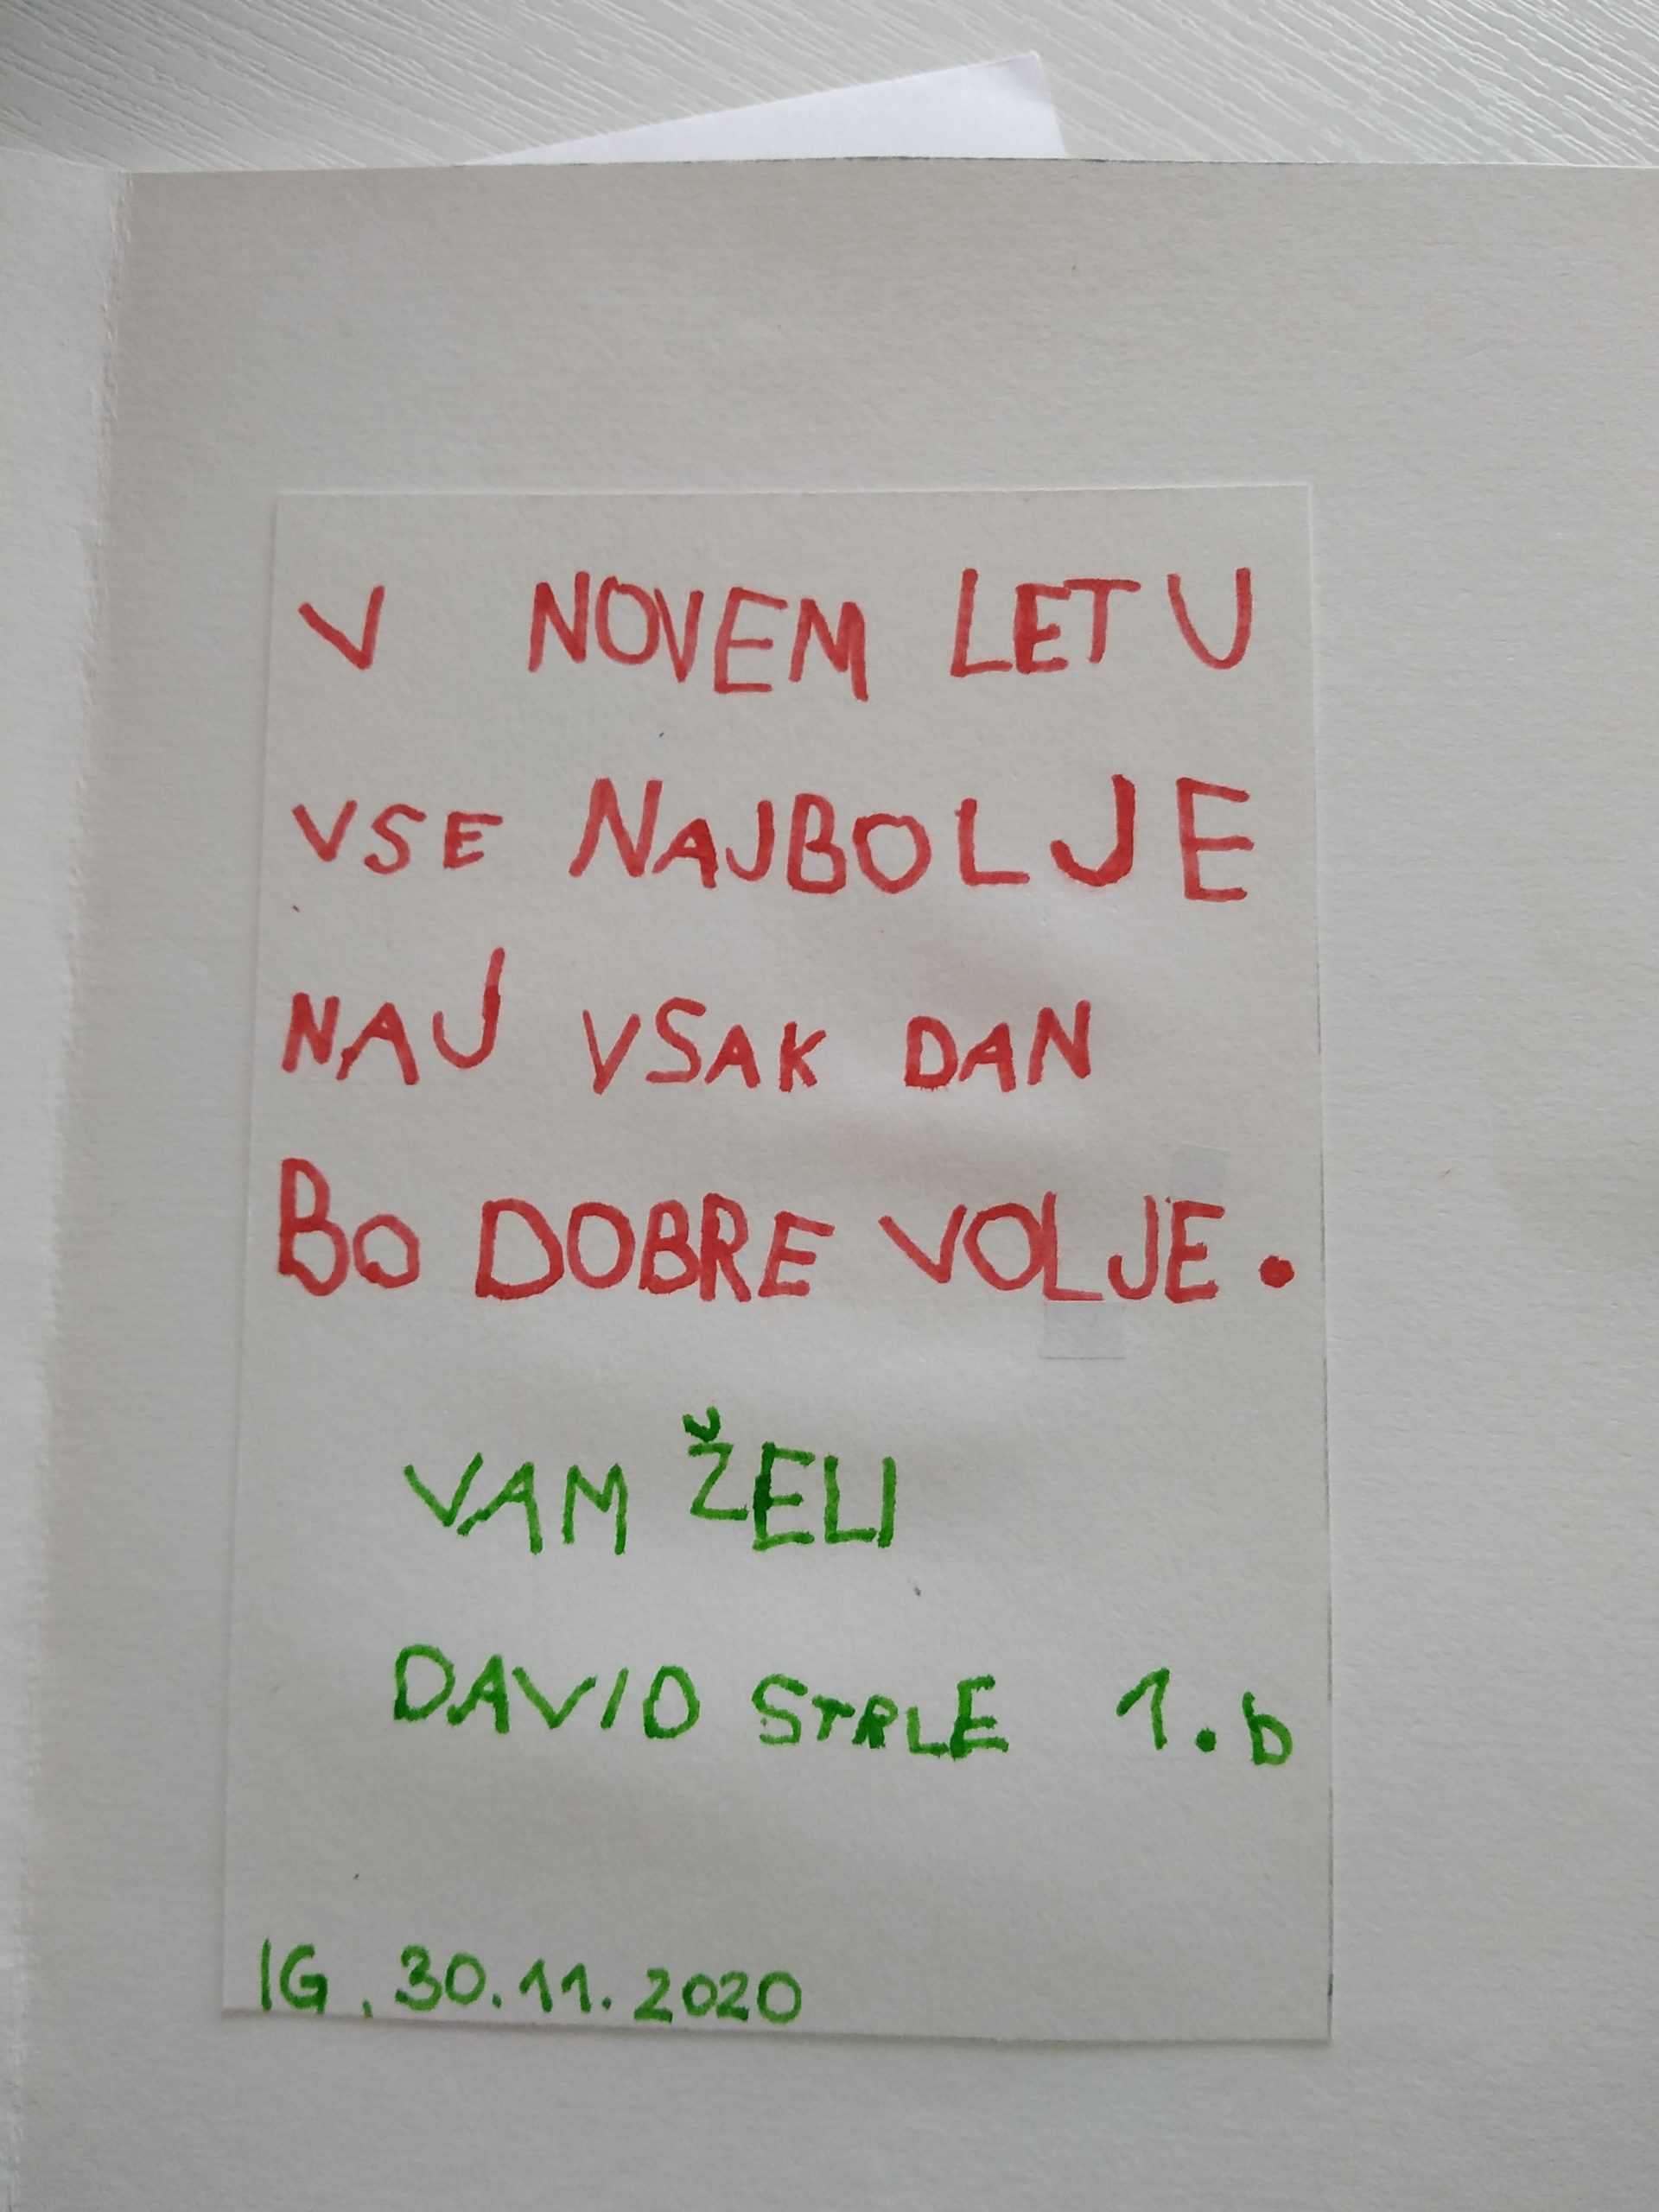 V NOVEM LETU
VSE NAJBOLJE
NAJ VSAK DAN
BO DOBRE VOLJE.
VAM ŽELI
DAVID STRLE 1.b
IG, 30.11.2020